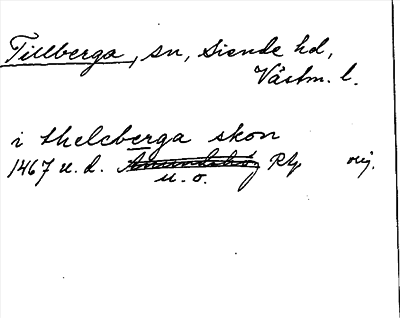 Tillberga, sn, Siende hd,
Västm. l.
i thelcberga skon
1467 u. d. RAp orig.
u. o.